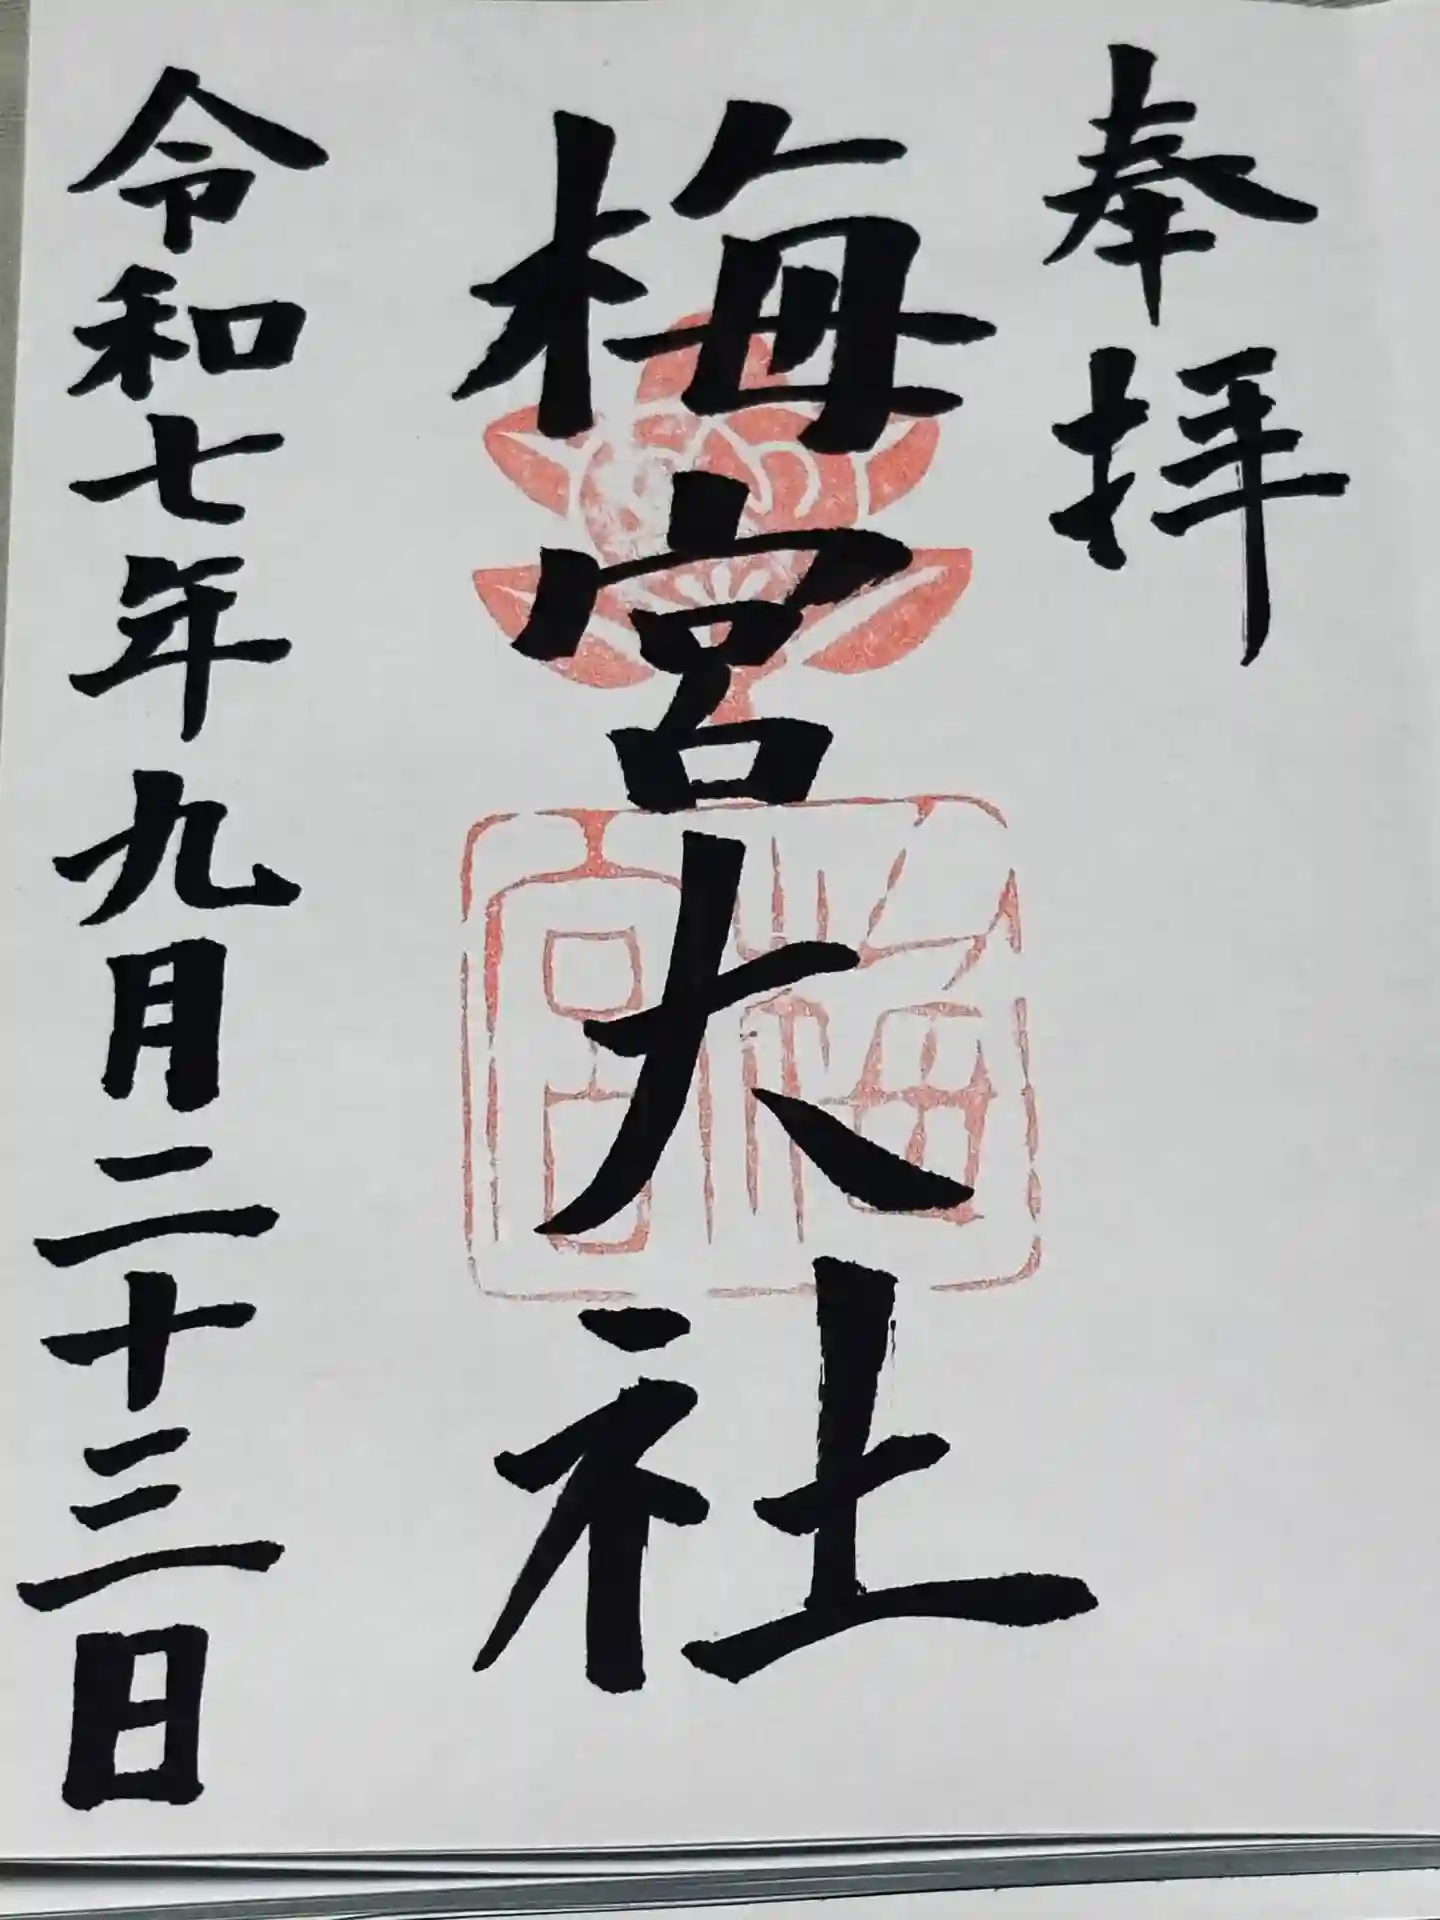 奉拝
梅宮大社
梅宮
令和七年九月二十三日